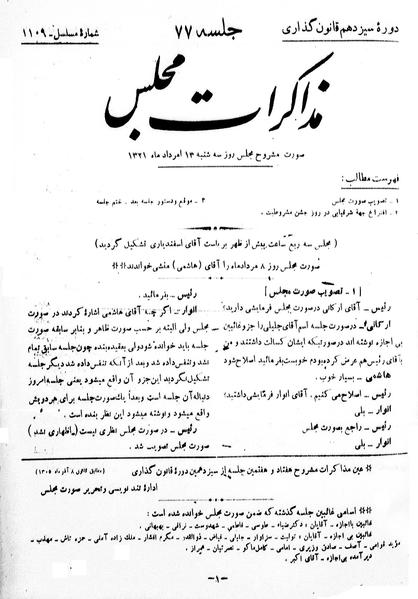 دورهٔ سیزدهم قانون گذاری
جلسه ۷۷
شمارهٔ مسلسل - ۱۱۰۹
مذاکرات مجلس
صورت مشروح مجلس روز سه شنبه ۱۳ امرداد ماه ۱۳۲۱
فهرست مطالب:
۱ - تصویب صورت مجلس
۲ - افتراغ جهة شرفیابی در روز جشن مشروطیت.
۳ - موقع و دستور جلسه بعد - ختم جلسه
(مجلس سه ربع ساعت پیش از ظهر بریاست آقای اسفندیاری تشکیل گردید)
صورت مجلس روز ۸ مرداد ماه را آقای (هاشمی) منشی خواندند
[۱ - تصویب صورت مجلس]
رئیس - آقای ارکانی درصورت مجلس فرمایشی دارید؟
ارکانی - درصورت جلسه اسم آقای جلیلی را جزو غائبین
بی اجازه نوشته اند درصورتیکه ایشان کسالت داشتند و
آقای رئیس هم عرض کرده بودم خوبست بفرمائید اصلاح شود
هاشمی - بسیار خوب.
رئیس - اصلاح می کنیم. آقای انوار فرمایشی داشتید؟
انوار - بلی
رئیس - راجع بصورت مجلس
انوار - بلی
رئیس - بفرمائید.
انوار - اگر چه آقای هاشمی اشاره کردند در صورت
مجلس ولی البته بر حسب صورت ظاهر و بنابر سابقه صورت
جلسه باید خوانده شود ولی بعقیده بنده چون جلسه سابق تمام
نشد و تنفس داده شد و بعد از آنکه تنفس داده شد دیگر جلسه
تشکیل نگردید این جزو آن واقع میشود یعنی جلسه امروز
دنباله آن جلسه است و بعداً یک صورت جلسه برای هر دویش
واقع میشود و نوشته میشود این نظر بنده است.
رئیس - در صورت مجلس نظری نیست (اظهاری نشد)
صورت مجلس تصویب شد.
عین مذاکرات مشروح هفتاد و هفتمین جلسه از سیزدهمین دورهٔ قانون گذاری
(مطابق قانون ۸ آذر ماه ۱۳۰۵)
ادارهٔ تند نویسی و تحریر صورت مجلس
اسامی غائبین جلسه گذشته که ضمن صورت مجلس خوانده شده است:
غائبین با اجازه - آقایان: دکتر ضیاء - طوسی - فاطمی - شهدوست - نراقی - بهبهانی.
غائبین بی اجازه - آقایان: تولیت - سزاوار - جلیلی - فیاض - ذوالقدر - مکرم افشار - ملک زاده آملی - عزه تاش - مهذب -
مؤید قوامی - آصف - صادق وزیری - امامی - کامل ماکو - نصرتیان -
دیر آمده بی اجازه - آقای اکبر.
- ۱ -